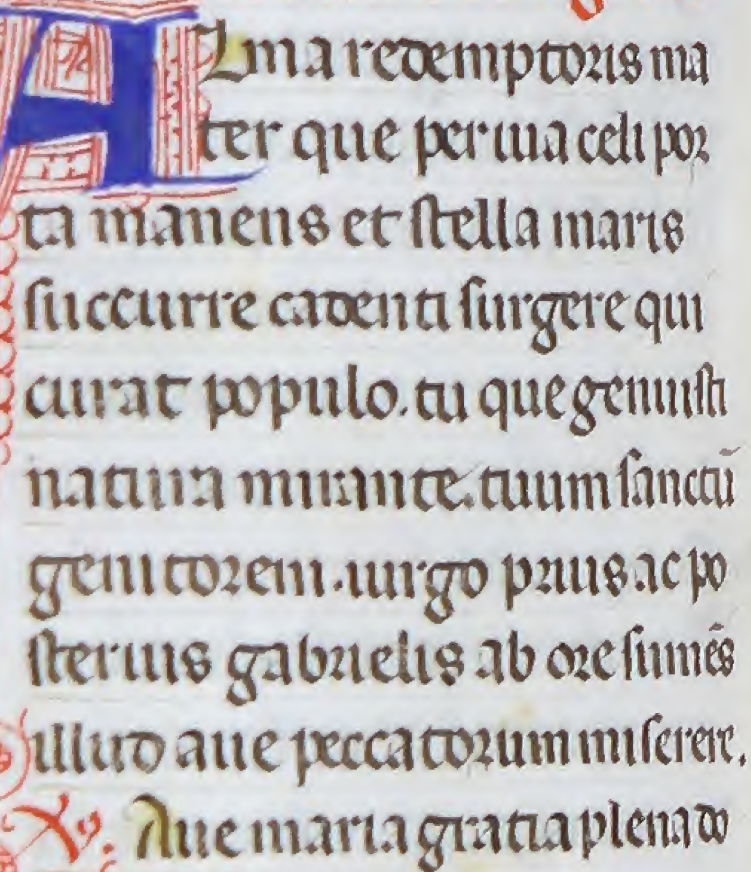 Alma redemptoris ma
ter que peruia celi por
ta manens et stella maris
succurre cadenti surgere qui
curat populo. tu que genuisti
natura mirante. tuum sanctū
genitorem. uirgo prius ac po
sterius gabrielis ab ore sumēs
illud aue peccatorum miserere.
V. Aue maria gratia plena do